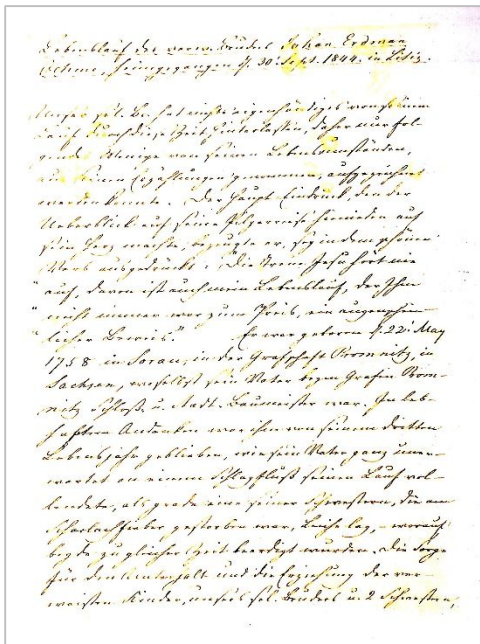 Lebenslauf des verw. Bruders Johan Erdman
heimgegangen d. 30. Sept. 1844. in Litiz.
Unser sel. Br. hat nichts eigenhändiges von seinem
Lauf durch diese Zeit hinterlassen, daher nur fol-
gendes Wenige von seinen Lebensumständen,
aus seinen Erzählungen genommen, aufgezeichnet
werden konnte. Der Haupt Eindruck, den der
Ueberblick auf seine Pilgerreise hienieden auf
sein Herz machte, bezeugte er, sey in dem schönen
Vers ausgedrückt: „Die Treue Jesu hört nie
„auf, davon ist auch mein Lebenslauf, der Ihm
„nicht immer war zum Preis, ein augenschein-
„licher Beweis." Er war geboren d. 22. May
1758 in Sorau, in der Grafschaft Promnitz, in
Sachsen, woselbst sein Vater beym Grafen Prom-
nitz Schloß- u. Stadt-Baumeister war. In leb-
haftem Andenken war ihm von seinem dritten
Lebensjahr geblieben, wie sein Vater ganz uner-
wartet an einem Schlagfluß seinen Lauf vol-
lendete, als grade eine seiner Schwestern, die am
Scharlachfieber gestorben war, Leiche lag, – worauf
beyde zu gleicher Zeit beerdigt wurden. Die Sorge
für den Unterhalt und die Erziehung der ver-
waisten Kinder, unsers sel. Bruders u. 2 Schwestern,